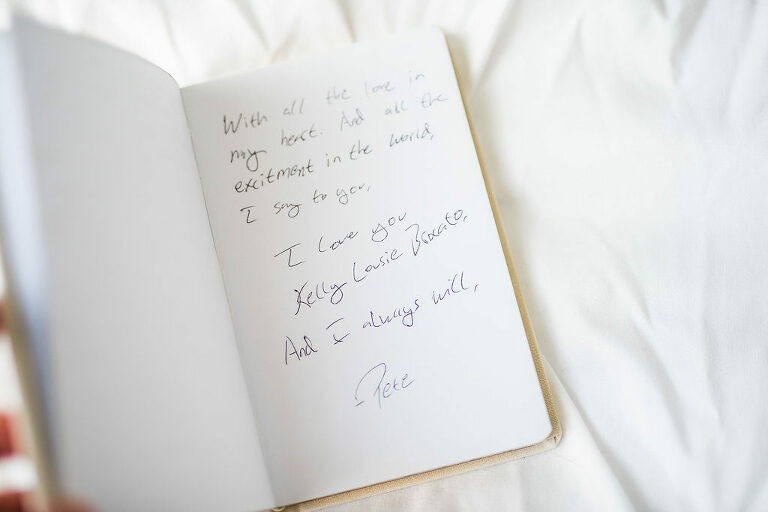 With all the love in
my heart. And all the
excitment in the world,
I say to you,
I love you
Kelly Lousie Brocato,
And I always will,
-Pete